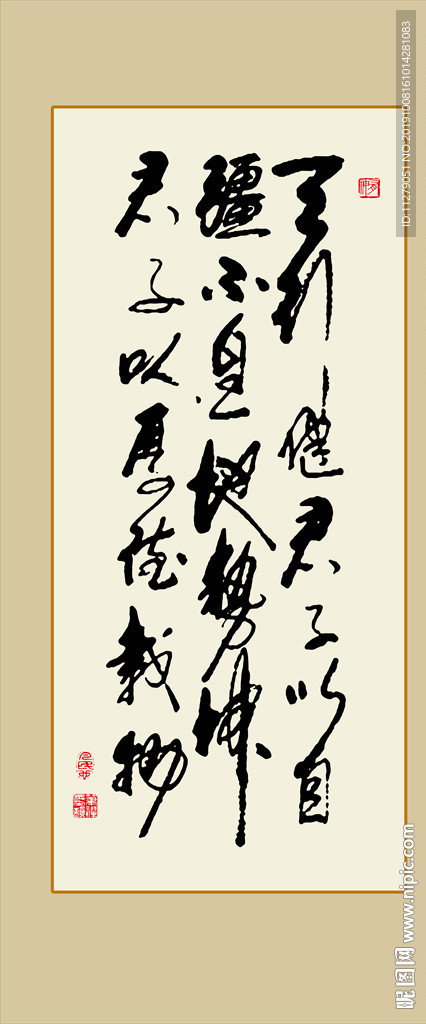 天行健君子以自
疆不息地势坤
君子以厚德载物
ID:11279051 NO:20191008161014281083
昵图网 www.nipic.com